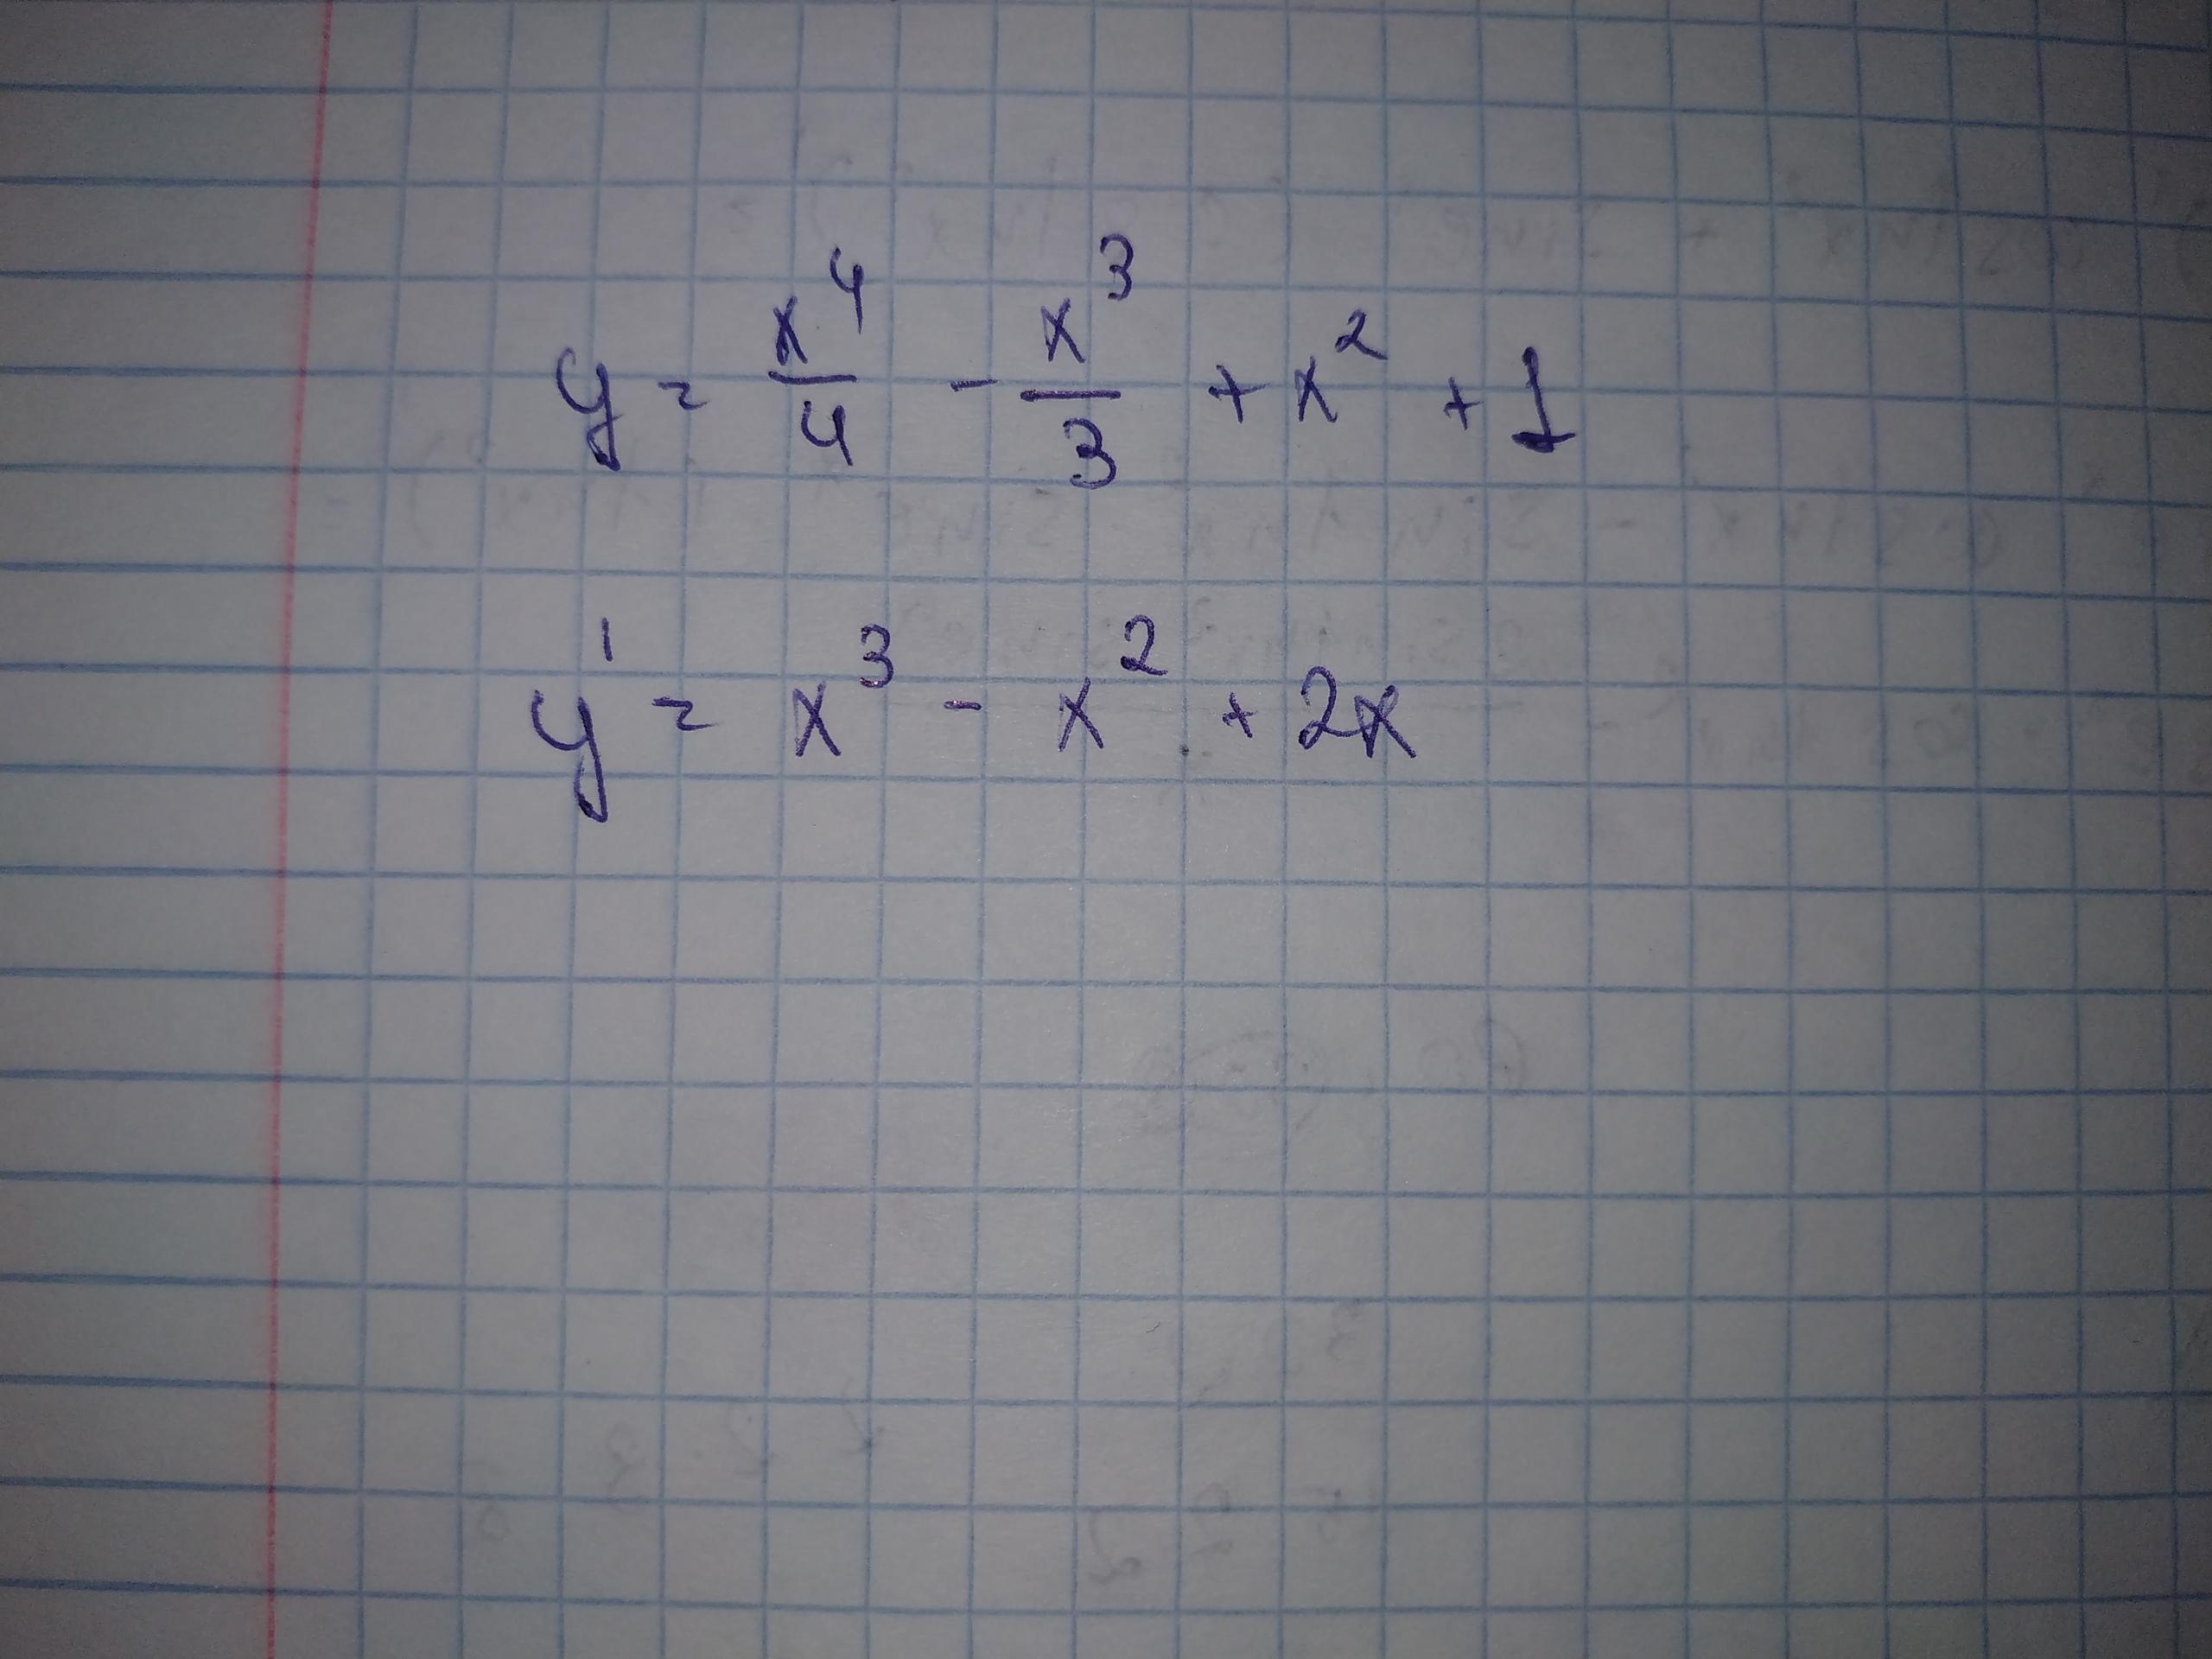 y = x^4/4 - x^3/3 + x^2 + 1
y' = x^3 - x^2 + 2x